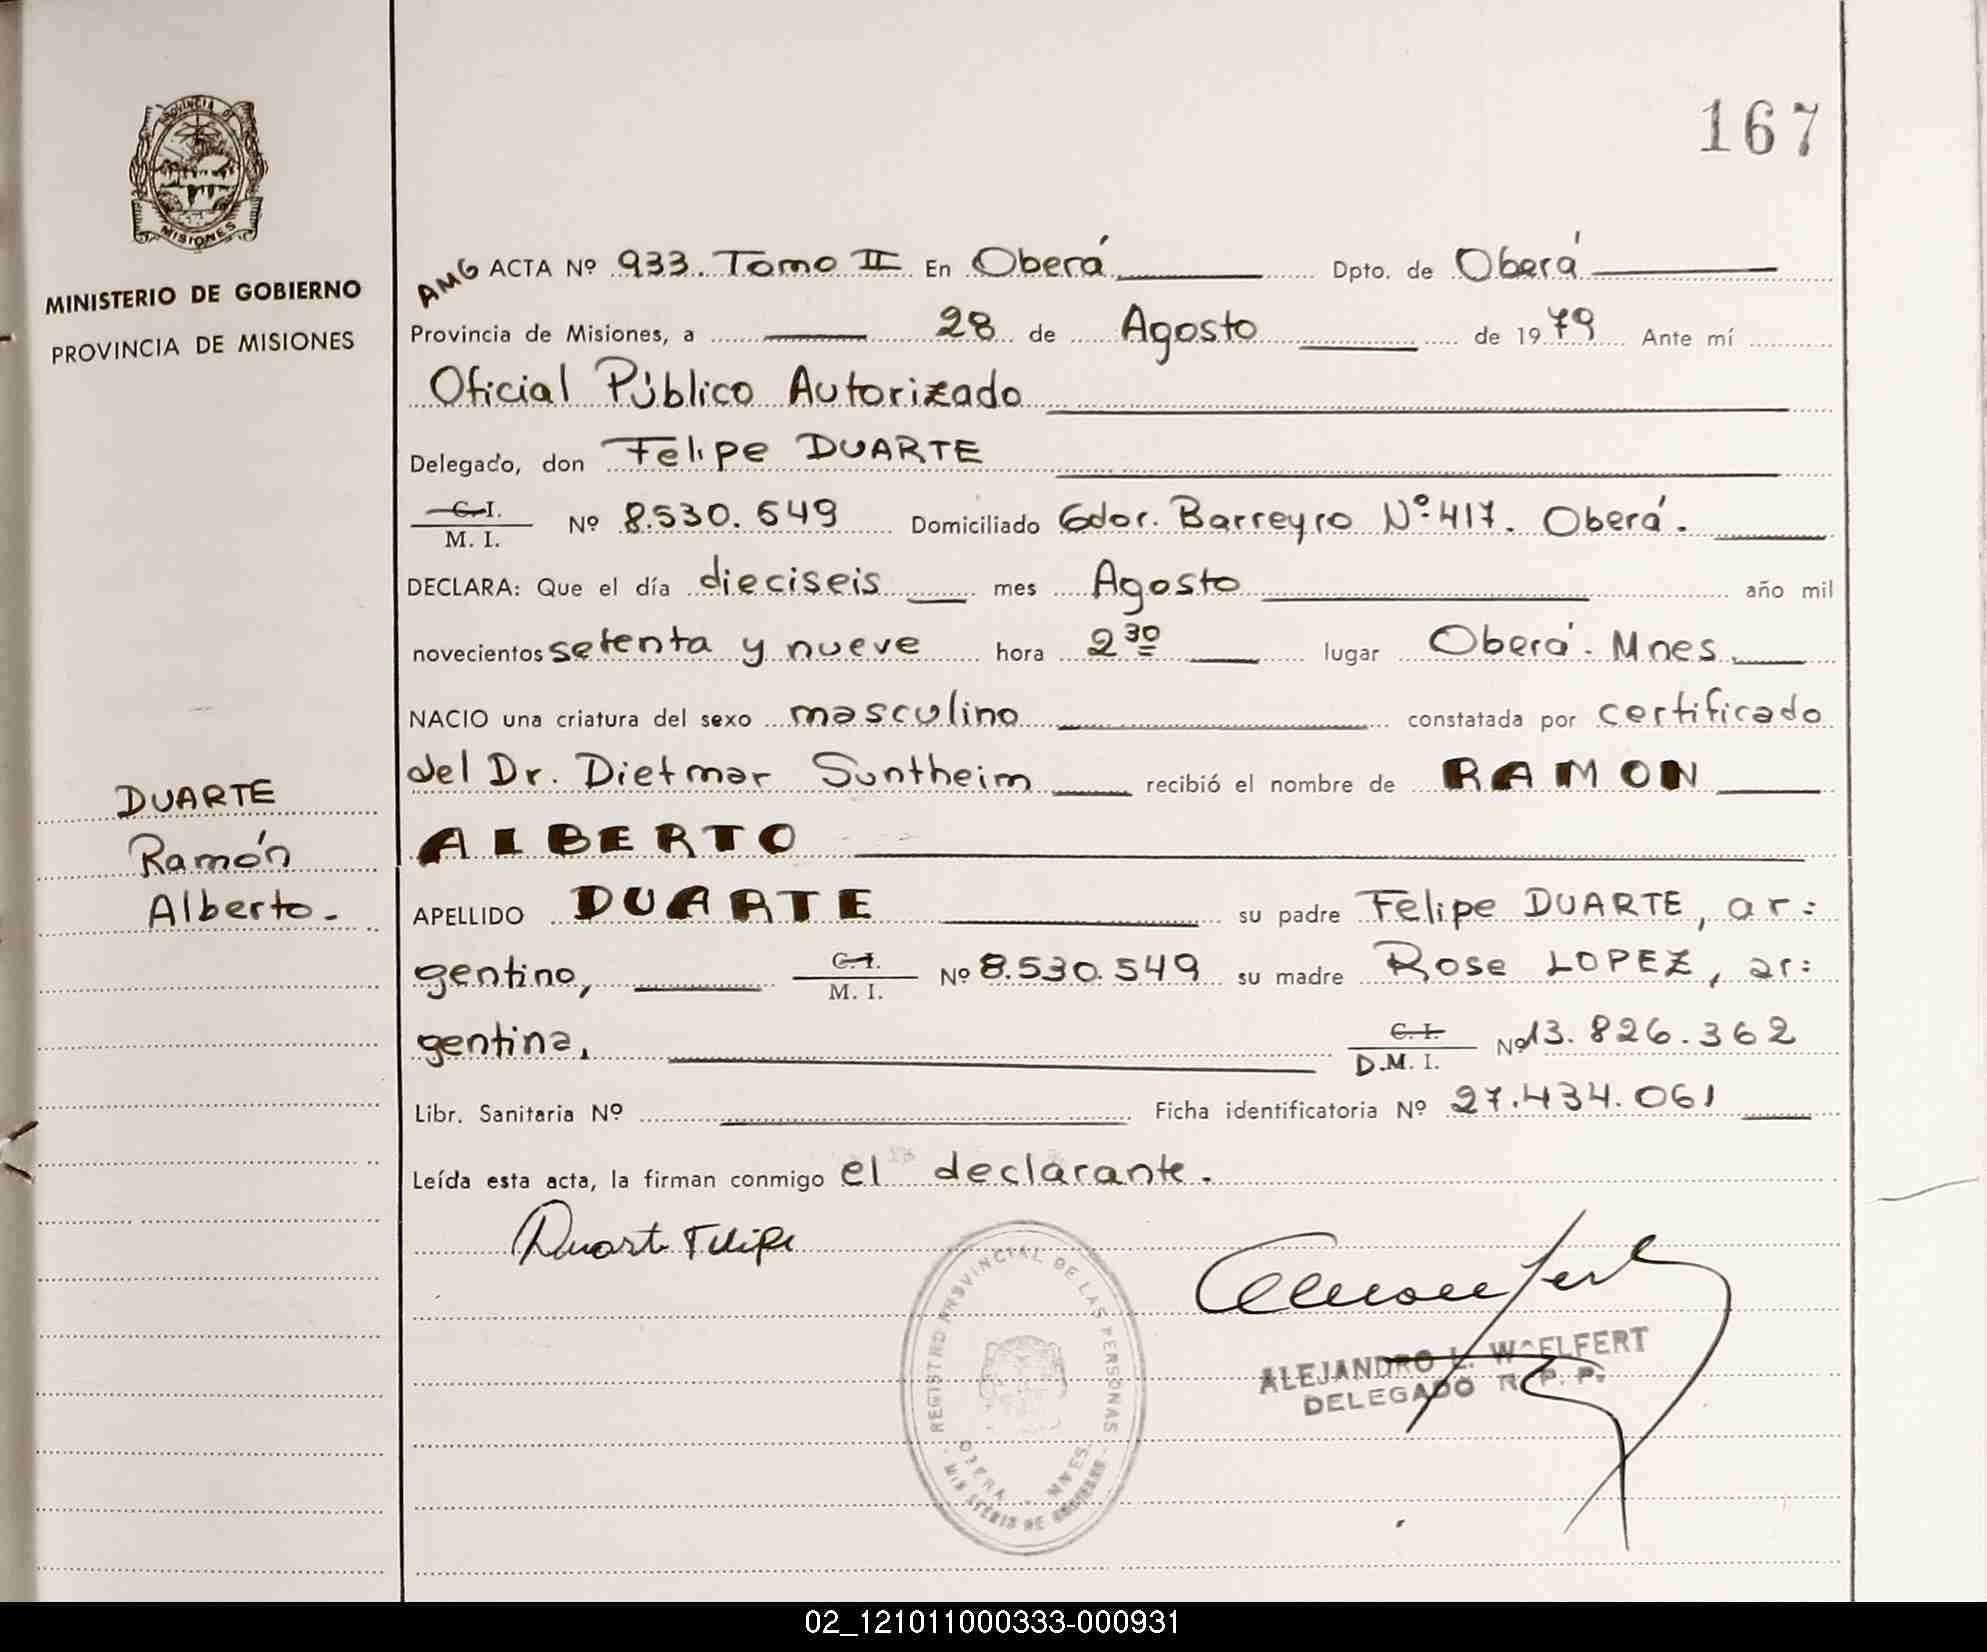 167
PROVINCIA DE
MISIONES
MINISTERIO DE GOBIERNO
PROVINCIA DE MISIONES
DUARTE
Ramón
Alberto.-
AMG ACTA Nº 933. Tomo II En Oberá Dpto. de Oberá
Provincia de Misiones, a 28 de Agosto de 1979 Ante mí
Oficial Público Autorizado
Delegado, don Felipe DUARTE
C.I.
M. I. Nº 8.530.549 Domiciliado Gdor. Barreyro Nº 417. Oberá.
DECLARA: Que el día dieciseis mes Agosto año mil
novecientos setenta y nueve hora 2 30 lugar Oberá. Mnes.
NACIO una criatura del sexo masculino constatada por certificado
del Dr. Dietmar Suntheim recibió el nombre de RAMON
ALBERTO
APELLIDO DUARTE su padre Felipe DUARTE, ar=
gentino, C.I.
M. I. Nº 8.530.549 su madre Rose LOPEZ, ar=
gentina, C.I.
D.M. I. Nº 13.826.362
Libr. Sanitaria Nº Ficha identificatoria Nº 27.434.061
Leída esta acta, la firman conmigo el declarante.
Duarte Felipe
REGISTRO PROVINCIAL DE LAS PERSONAS
OBERA - MNES.
MINISTERIO DE GOBIERNO
ALEJANDRO L. WOELFERT
DELEGADO R. P. P.
02_121011000333-000931